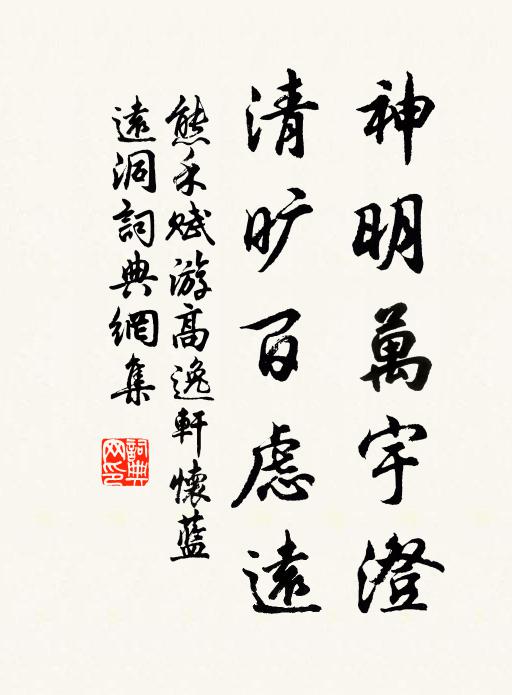 神明萬宇澄
清旷百慮遠
熊禾赋游高逸軒懷藍
遠洞詞典網集
詞典网印